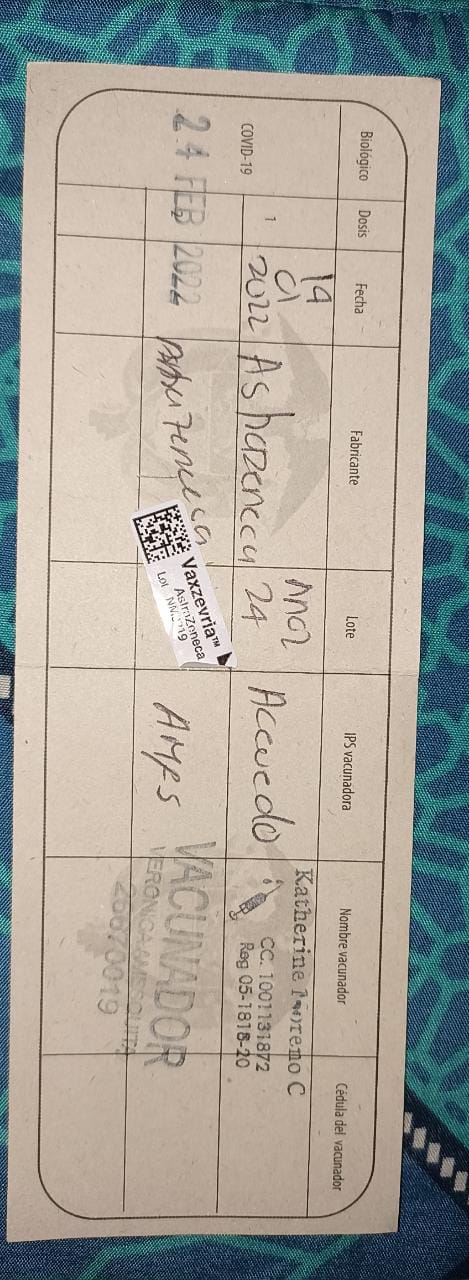 Biológico Dosis Fecha Fabricante Lote IPS vacunadora Nombre vacunador Cédula del vacunador
COVID-19 1
19
01
2022
AstraZeneca
24
Acevedo
Katherine Moreno C
CC. 1001131872
Reg 05-1818-20
24 FEB 2022
AstraZeneca
Vaxzevria™
AstraZeneca
Lot
AMPS
VACUNADOR
VERONICA
26670019